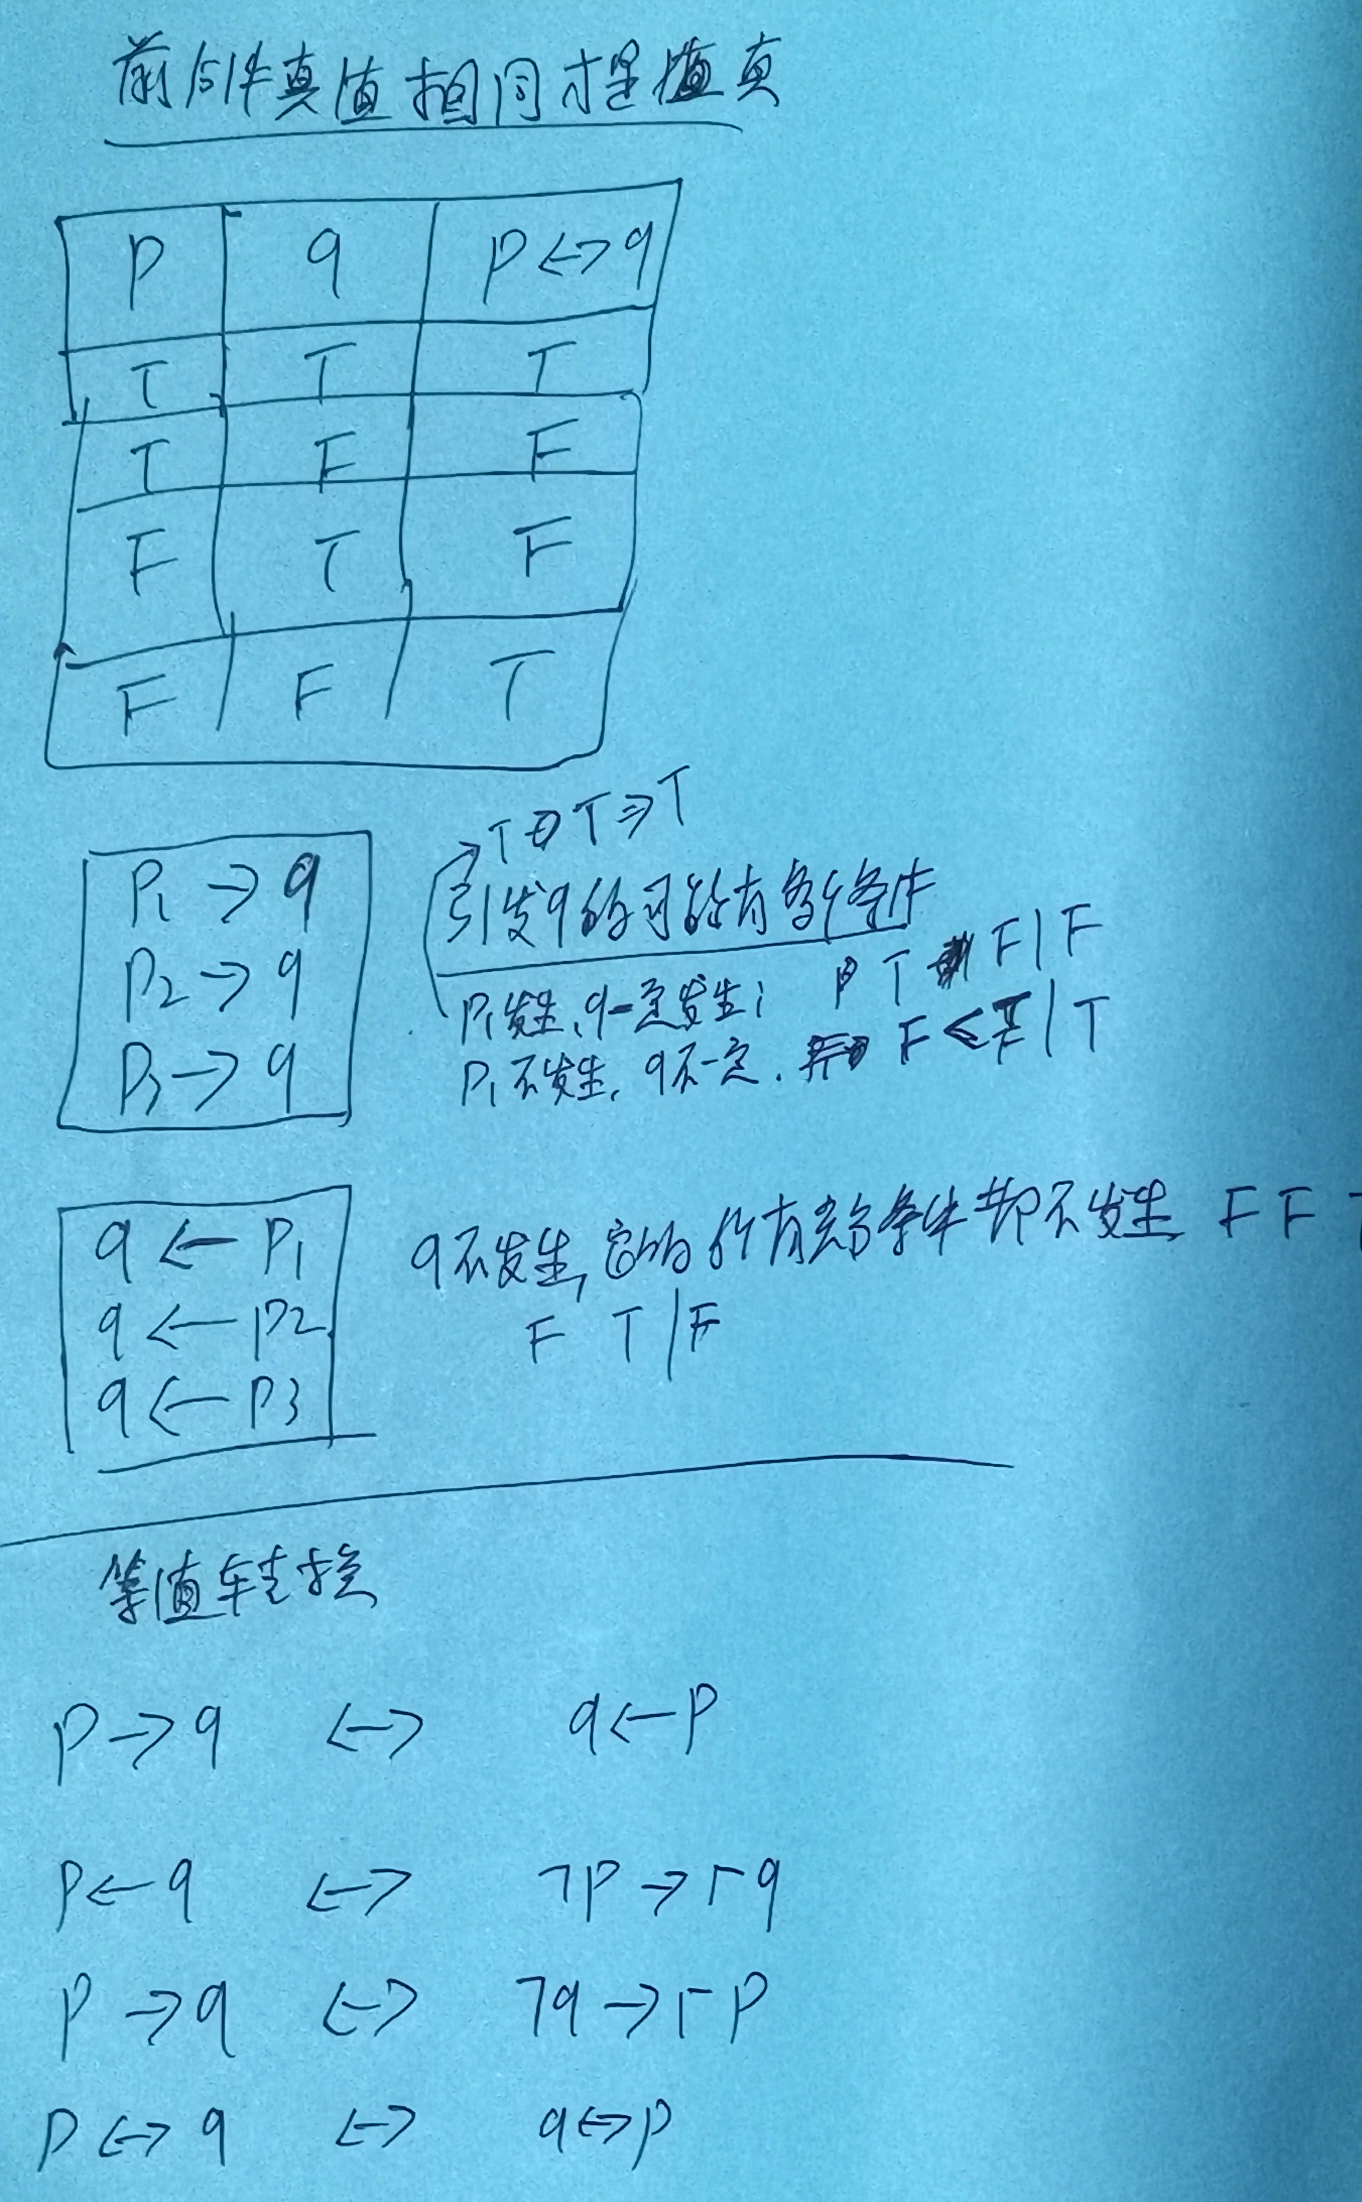 前后件真值相同才是值真
P q P<->q
T T T
T F F
F T F
F F T
P1 -> q
P2 -> q
P3 -> q
T T => T
引发q的可能有多个条件
P1发生,q一定发生; P T F|F
P1不发生,q不一定. F < F|T
q <- P1
q <- P2
q <- P3
q不发生,它的所有条件都不发生 F F
F T|F
等值转换
P->q <-> q<-P
P<-q <-> ¬P->¬q
P->q <-> ¬q->¬P
P<->q <-> q<->P